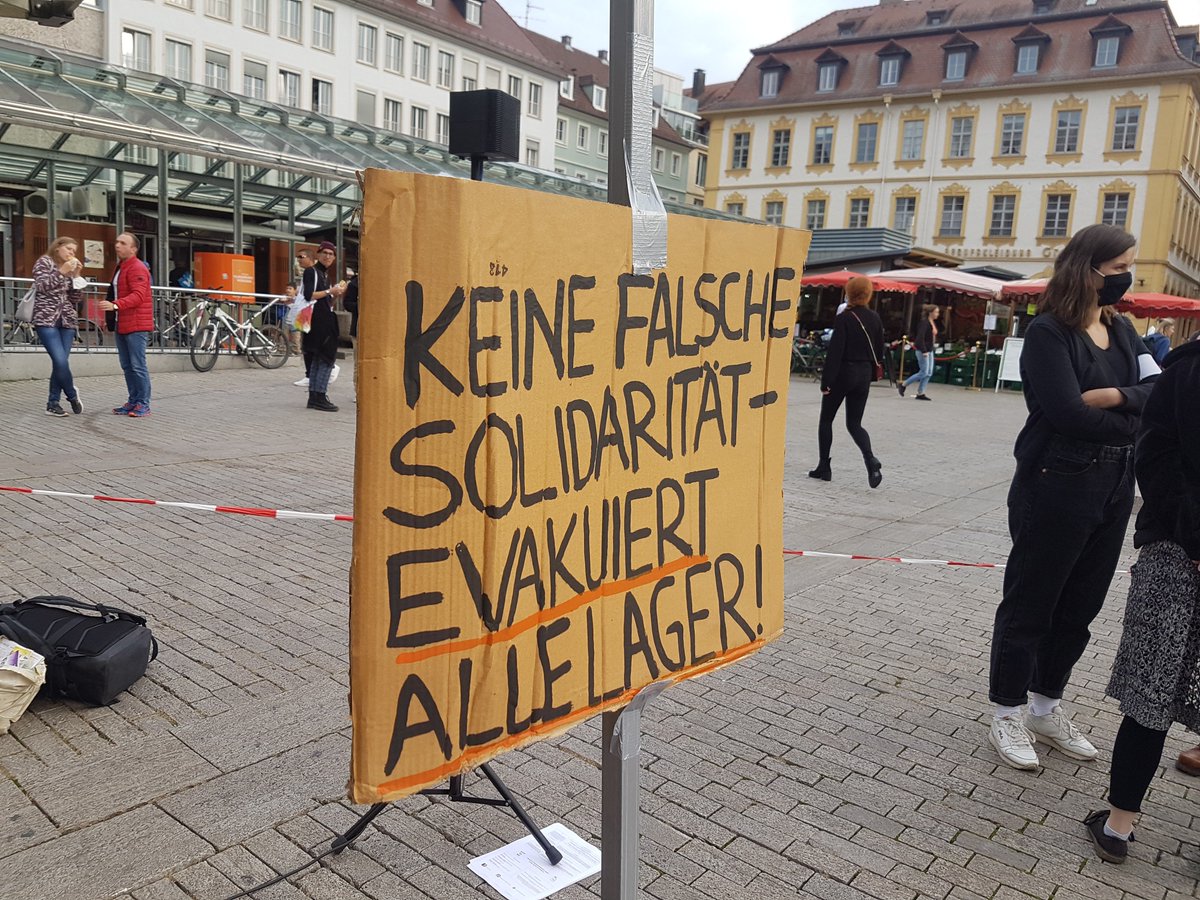 KEINE FALSCHE
SOLIDARITÄT–
EVAKUIERT
ALLE LAGER!